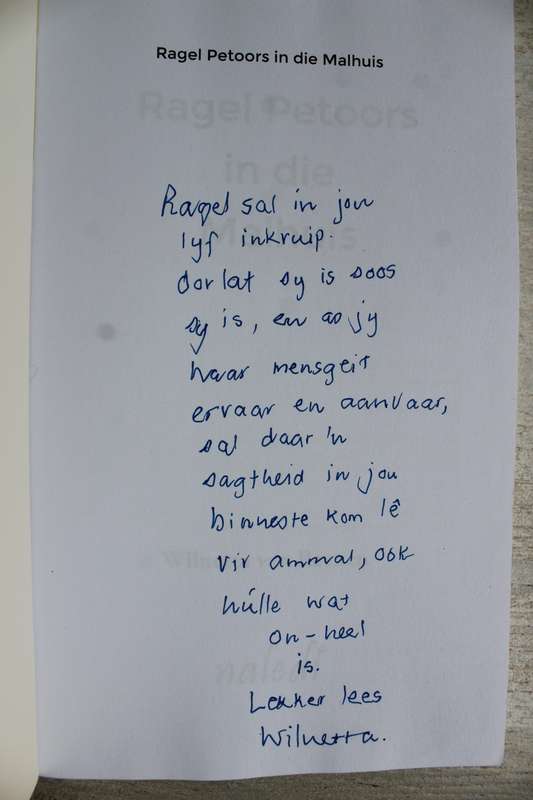 Ragel Petoors in die Malhuis
Ragel Petoors
in die
Malhuis
Ragel sal in jou
lyf inkruip.
dorlat sy is soos
sy is, en as jy
haar mensgeit
ervaar en aanvaar,
sal daar 'n
sagtheid in jou
binneste kom lê
vir ammal, ook
húlle wat
on-heel
is.
Lekker lees
Wilnetta.
naledi